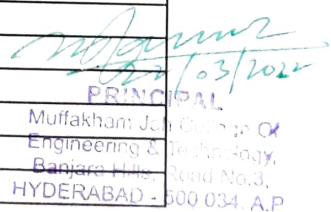 22/03/2022
PRINCIPAL
Muffakham Jah College Of
Engineering & Technology,
Banjara Hills, Road No.3,
HYDERABAD - 500 034. A.P